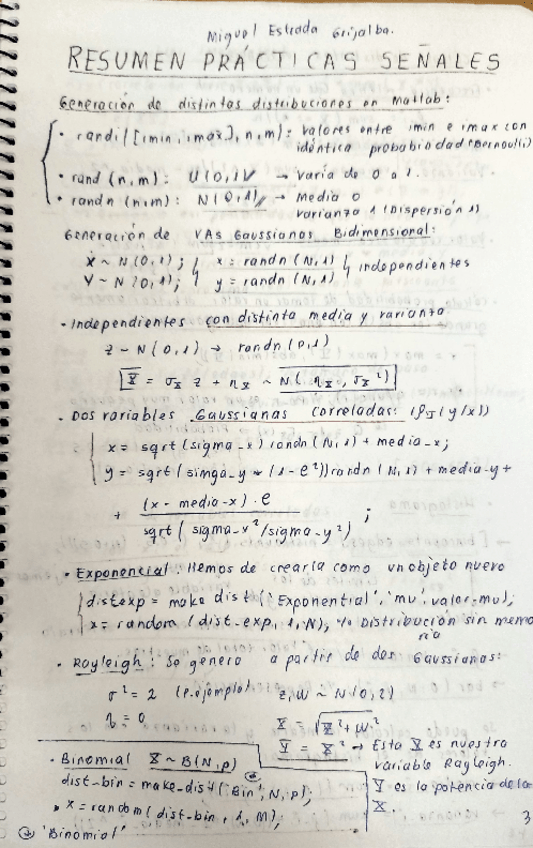 Miguel Estrada Grijalba.
RESUMEN PRÁCTICAS SEÑALES
Generación de distintas distribuciones en Matlab:
· randi([imin, imax], n, m): Valores entre imin e imax con
idéntica probabiodad (Bernoulli)
· rand (n,m): U(0,1) → Varía de 0 a 1.
· randn (n,m): N(0,1) → Media 0
Varianza 1 (Dispersión 1)
Generación de VAs Gaussianas Bidimensional:
X ~ N(0,1); x = randn (N,1) independientes
Y ~ N(0,1); y = randn (N,1)
· Independientes con distinta media y varianza.
z ~ N(0,1) → randn(0,1)
X = σx z + ηx ~ N(ηx, σx²)
· Dos variables Gaussianas Correladas: (ρJ(y/x))
x = sqrt(sigma-x) randn(N,1) + media-x;
y = sqrt(simga-y * (1-e²)) randn (N,1) + media-y +
+ (x - media-x) · e
sqrt( sigma-x²/sigma-y²) ;
· Exponencial: Hemos de crearla como un objeto nuevo
distexp = make dist('Exponential','mu',valor-mu);
x = random (dist-exp, 1, N); % Distribución sin memo
ria
· Rayleigh: Se genera a partir de dos Gaussianas:
σ² = 2 (P.ejemplo) z, W ~ N(0,2)
η = 0
X = √Z² + W²
Y = X² → Esta X es nuestra
variable Rayleigh.
Y es la potencia de la
X.
· Binomial X ~ B(N,p)
dist-bin = make-dist('Bin', N, p);
· x = random( dist-bin, 1, M);
'Binomial'
3